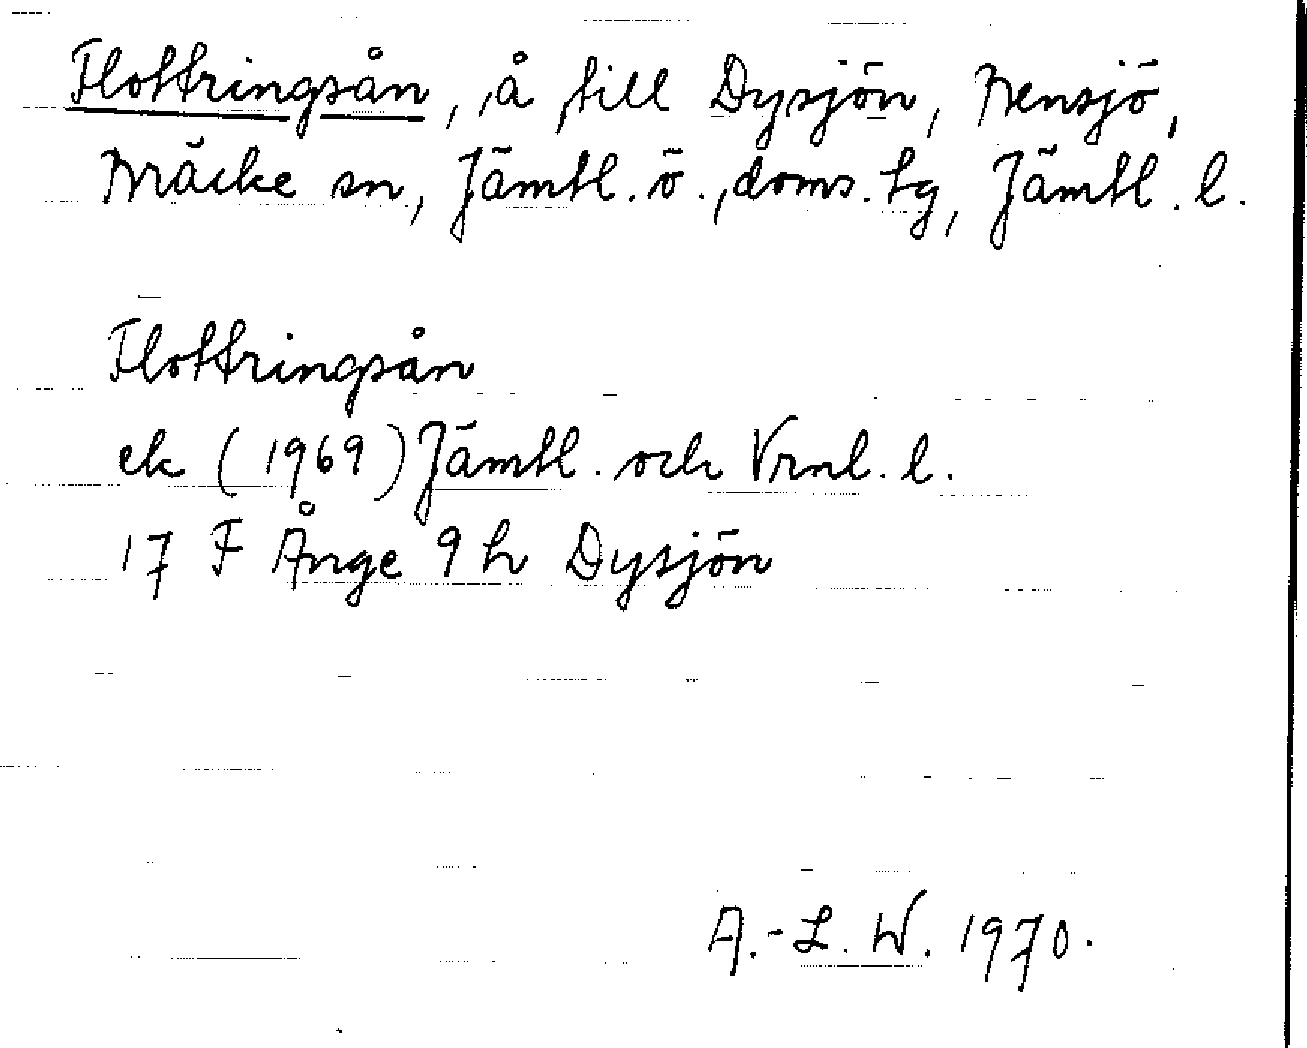 Flottringsån, å till Dysjön, Bensjö,
Bräcke sn, Jämtl. ö., doms. tg, Jämtl. l.
Flottringsån
ek (1969) Jämtl. och Vrnl. l.
17 F Ånge 9 h Dysjön
A.-L. W. 1970.